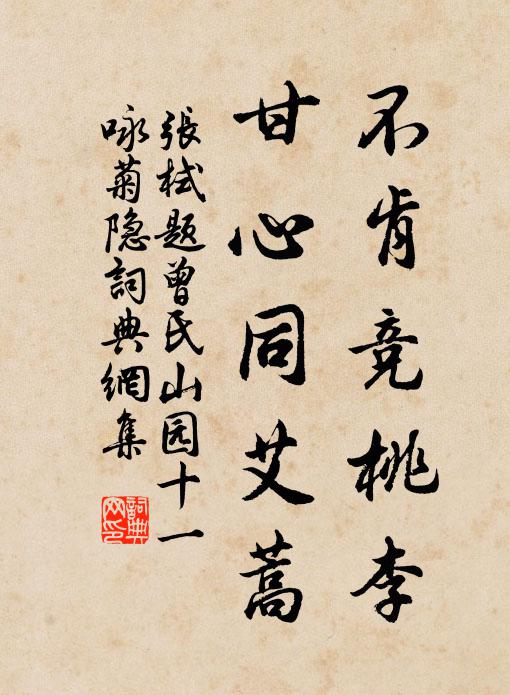 不肯竞桃李
甘心同艾蒿
張栻题曾氏山园十一
咏菊隐詞典網集
詞典
网印